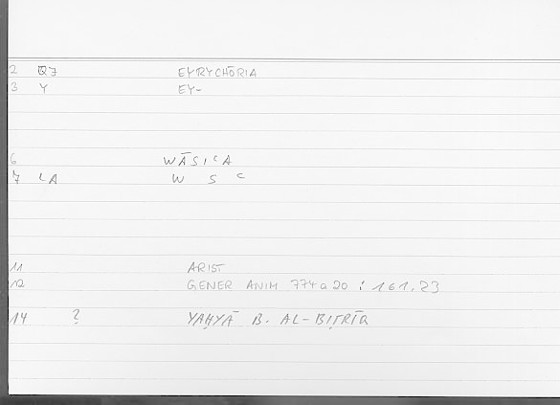 2 QJ EYRYCHŌRIA
3 Y EY-
6 WĀSIʿA
7 ʿA W S ʿ
11 ARIST
12 GENER ANIM 774a20 : 161.23
14 ? YAḤYĀ B. AL-BIṬRĪQ